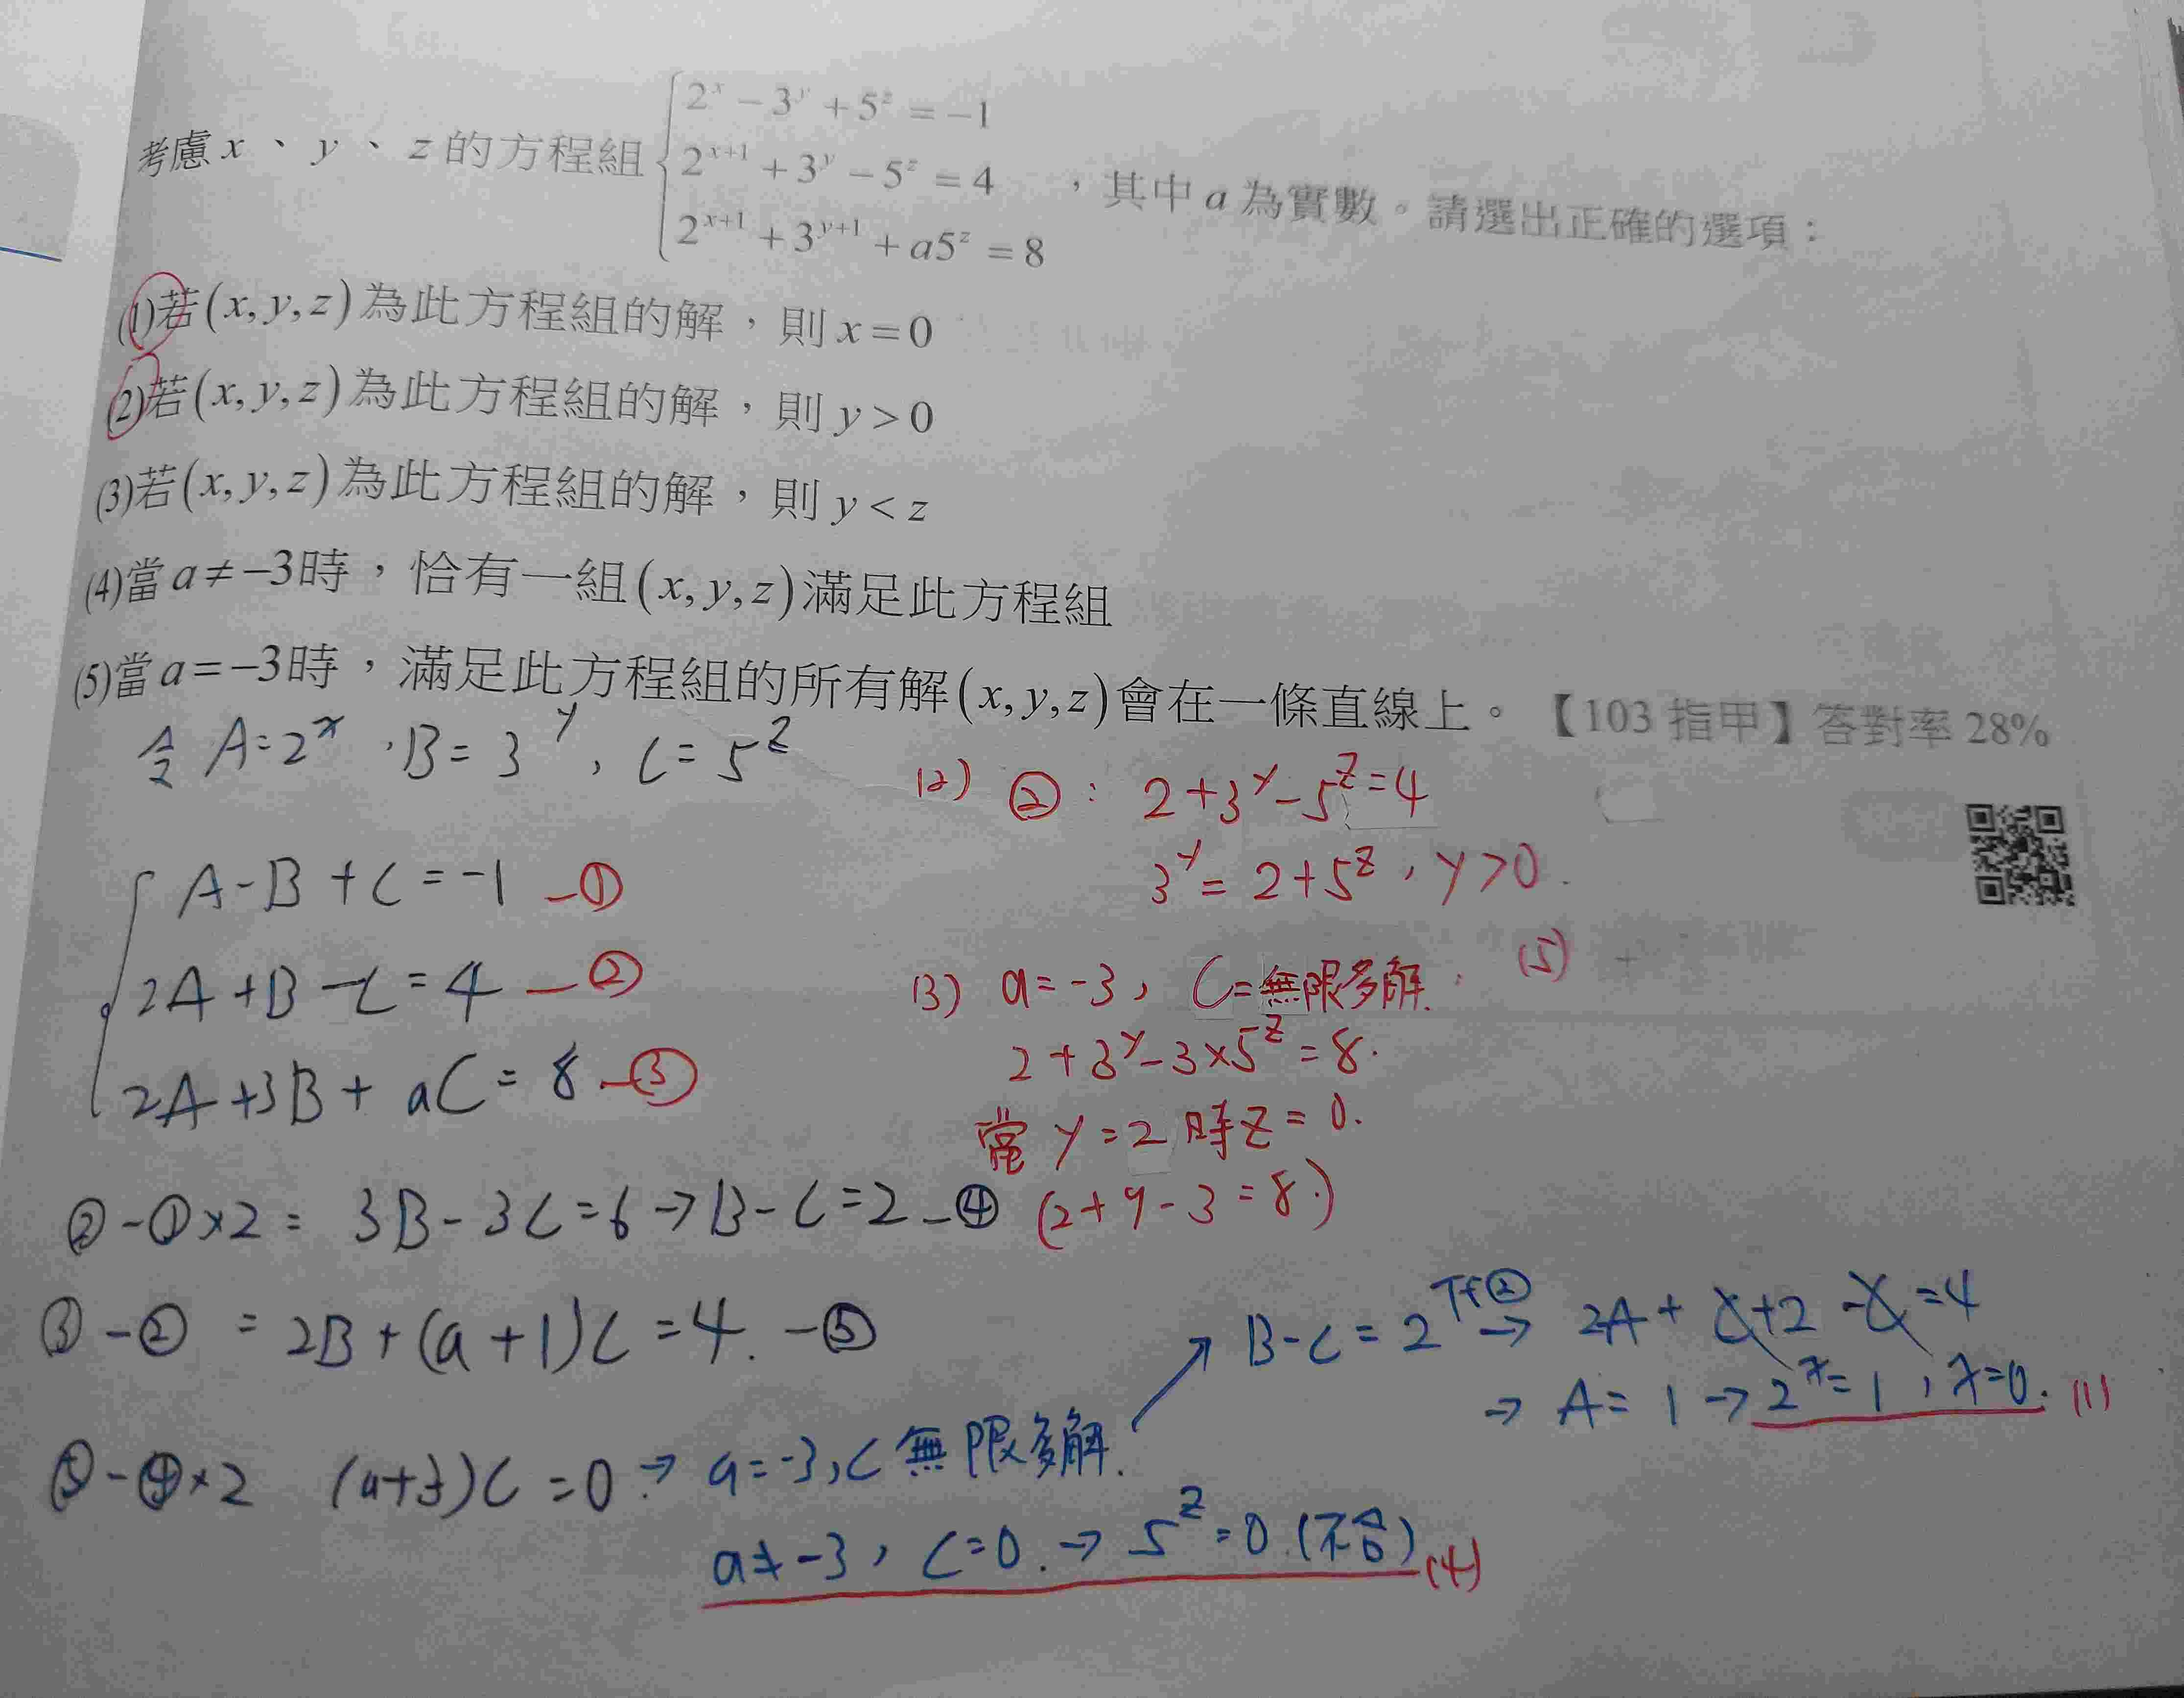 考慮 x、y、z 的方程組 { 2^x − 3^y + 5^z = −1
2^{x+1} + 3^y − 5^z = 4
2^{x+1} + 3^{y+1} + a5^z = 8
，其中 a 為實數。請選出正確的選項：
(1)若(x, y, z)為此方程組的解，則 x = 0
(2)若(x, y, z)為此方程組的解，則 y > 0
(3)若(x, y, z)為此方程組的解，則 y < z
(4)當 a ≠ −3時，恰有一組(x, y, z)滿足此方程組
(5)當 a = −3時，滿足此方程組的所有解(x, y, z)會在一條直線上。【103 指甲】答對率 28%
令 A=2^x，B=3^y，C=5^z
A-B+C=-1 —①
2A+B-C=4 —②
2A+3B+aC=8 —③
②-①×2= 3B-3C=6→B-C=2 —④
③-② = 2B+(a+1)C=4. —⑤
⑤-④×2 (a+3)C=0 → a=-3, C 無限多解.
a≠-3，C=0.→ 5^z=0 (不合) (4)
B-C=2 代② → 2A+C+2-C=4
→ A=1 → 2^x=1，x=0. (1)
(2) ②: 2+3^y-5^z=4
3^y=2+5^z，y>0.
(3) a=-3，C=無限多解. (5)
2+3^y-3×5^z=8.
當 y=2 時 z=0.
(2+9-3=8.)